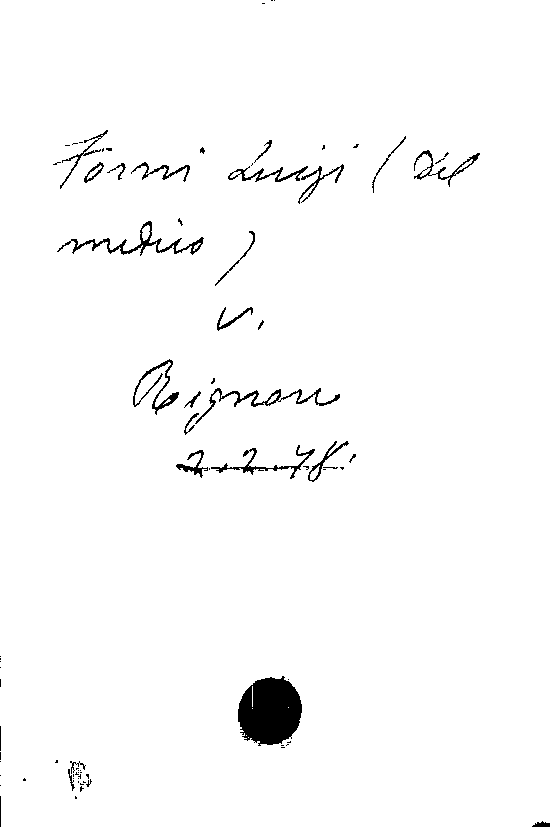 Forni Luigi (Del
medico)
v.
Rignon
2.2.78.